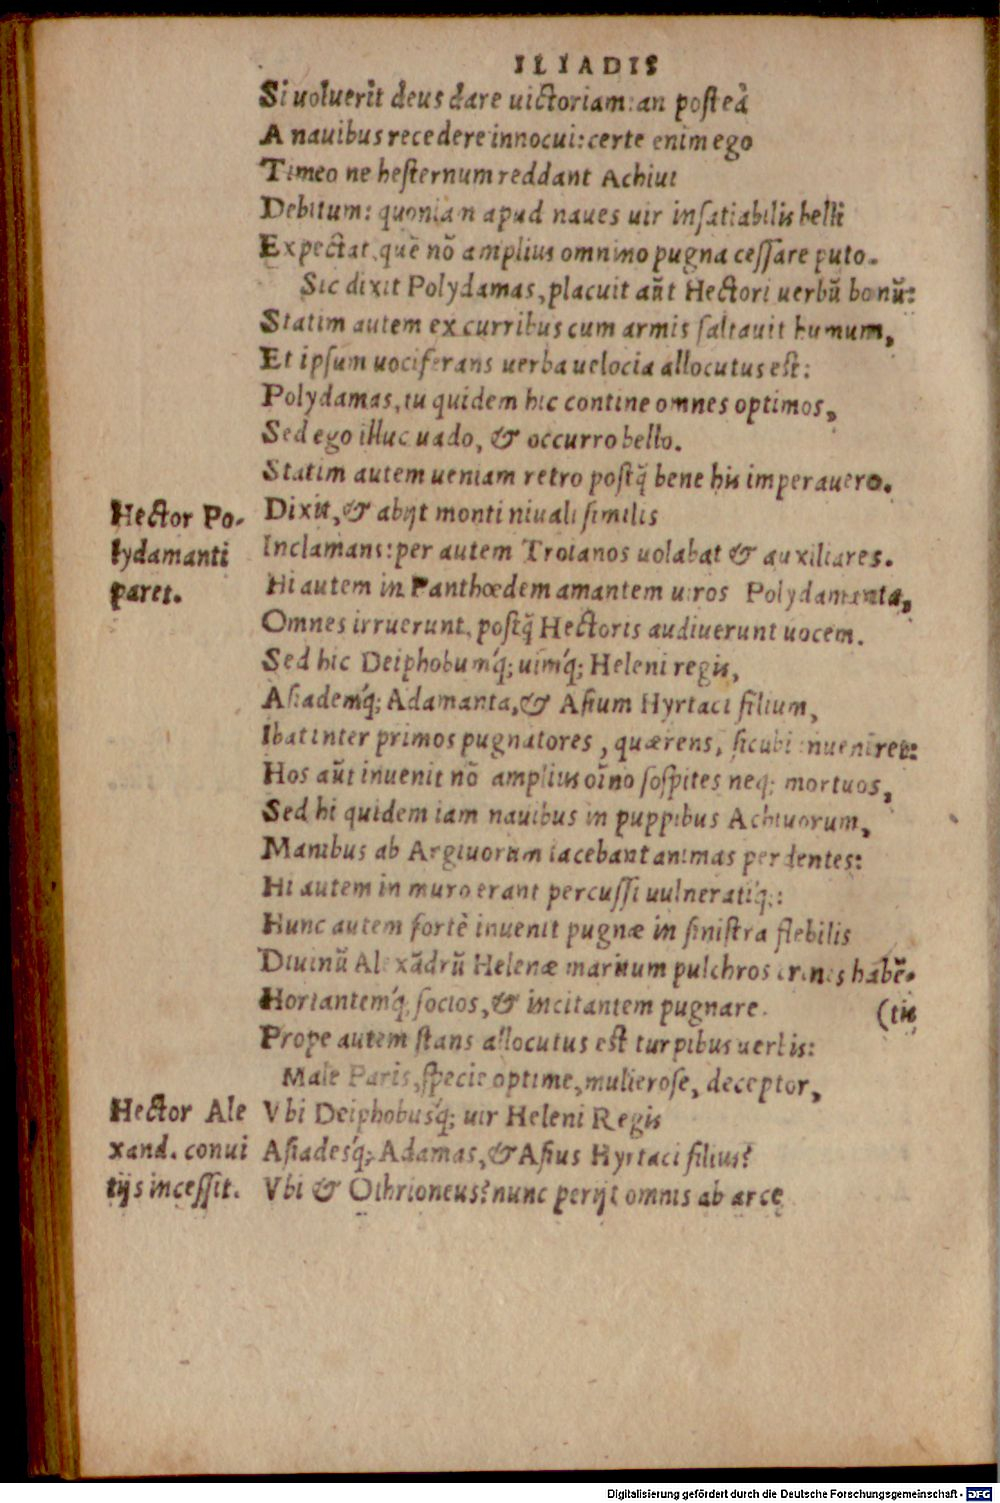 ILIADIS
Si uoluerit deus dare uictoriam: an posteà
A nauibus recedere innocui: certe enim ego
Timeo ne hesternum reddant Achiui
Debitum: quoniam apud naues uir insatiabilis belli
Expectat, quē nō amplius omnino pugna cessare puto.
Sic dixit Polydamas, placuit aūt Hectori uerbū bonū:
Statim autem ex curribus cum armis saltauit humum,
Et ipsum uociferans uerba uelocia allocutus est:
Polydamas, tu quidem hic contine omnes optimos,
Sed ego illuc uado, & occurro bello.
Statim autem ueniam retro postq̄ bene his imperauero.
Hector Po-
lydamanti
paret.
Dixit, & abijt monti niuali similis
Inclamans: per autem Troianos uolabat & auxiliares.
Hi autem in Panthœdem amantem uiros Polydamanta,
Omnes irruerunt, postq̄ Hectoris audiuerunt uocem.
Sed hic Deiphobumq́; uimq́; Heleni regis,
Asiademq́; Adamanta, & Asium Hyrtaci filium,
Ibat inter primos pugnatores, quærens, sicubi inueniret:
Hos aūt inuenit nō amplius oīno sospites neq; mortuos,
Sed hi quidem iam nauibus in puppibus Achiuorum,
Manibus ab Argiuorum iacebant animas perdentes:
Hi autem in muro erant percussi uulneratiq́;:
Hunc autem fortè inuenit pugnæ in sinistra flebilis
Diuinū Alexādrū Helenæ maritum pulchros crines habē-
(tis
Hortantemq́; socios, & incitantem pugnare.
Prope autem stans allocutus est turpibus uerbis:
Male Paris, specie optime, mulierose, deceptor,
Hector Ale
xand. conui
tijs incessit.
Vbi Deiphobusq́; uir Heleni Regis
Asiadesq́; Adamas, & Asius Hyrtaci filius?
Vbi & Othrioneus? nunc perijt omnis ab arce
Digitalisierung gefördert durch die Deutsche Forschungsgemeinschaft - DFG